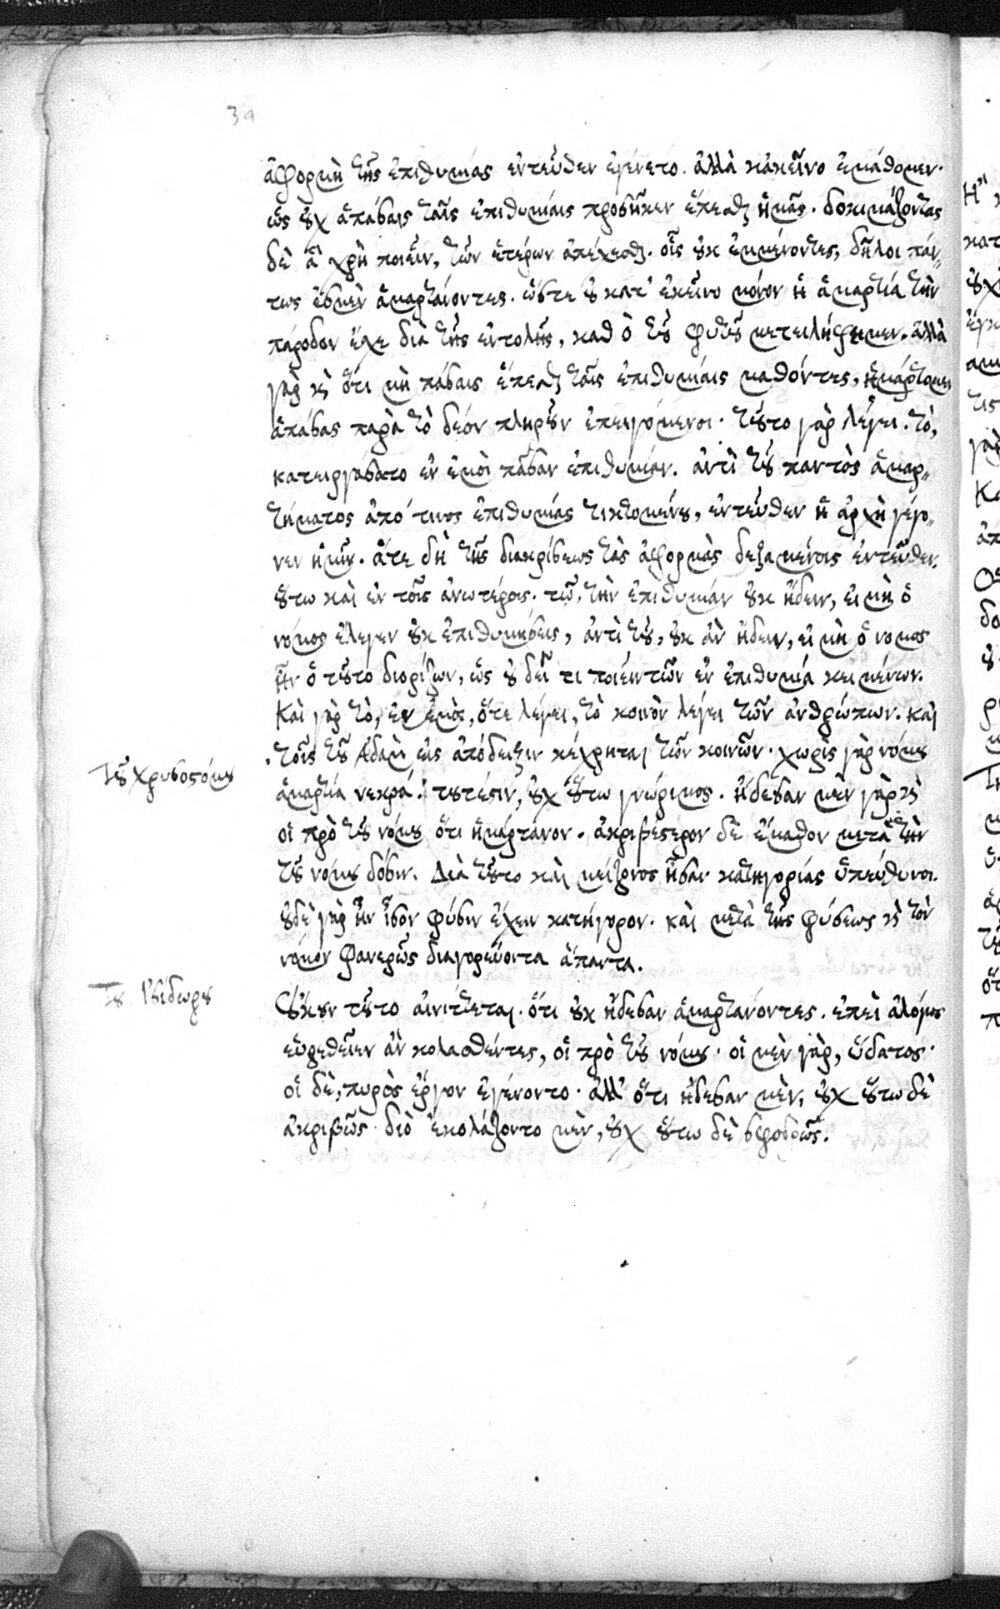 ἀφορμὴ τῆς ἐπιθυμίας ἐντεῦθεν ἐγένετο. ἀλλὰ κἀκεῖνο ἐμάθομεν·
ὡς οὐχ ἁπάσαις ταῖς ἐπιθυμίαις προσῆκεν ἕπεσθαι ἡμᾶς. δοκιμάζοντας
δὲ ἃ χρὴ ποιεῖν, τῶν ἑτέρων ἀπέχεσθαι. οἷς οὐκ ἐμμένοντες, δῆλοι πάν-
τως ἐσμὲν ἁμαρτάνοντες. ὥστε οὐ κατ' ἐκεῖνο μόνον ἡ ἁμαρτία τὴν
πάροδον ἔσχε διὰ τῆς ἐντολῆς, καθ ὃ τοῦ φυτοῦ μετειλήφαμεν. ἀλλὰ
γὰρ καὶ ὅτι μὴ πάσαις ἕπεσθαι ταῖς ἐπιθυμίαις μαθόντες, ἡμάρτομεν
ἁπάσας παρὰ τὸ δέον πληροῦν ἐπειγόμενοι. τοῦτο γὰρ λέγει. τὸ,
κατειργάσατο ἐν ἐμοὶ πᾶσαν ἐπιθυμίαν. ἀντὶ τοῦ παντὸς ἁμαρ-
τήματος ἀπό τινος ἐπιθυμίας τικτομένου, ἐντεῦθεν ἡ ἀρχὴ γέγο-
νεν ἡμῖν. ἅτε δὴ τῆς διακρίσεως τὰς ἀφορμὰς δεξαμένοις ἐντεῦθεν.
οὕτω καὶ ἐν τοῖς ἀνωτέροις. τῷ, τὴν ἐπιθυμίαν οὐκ ᾔδειν, εἰ μὴ ὁ
νόμος ἔλεγεν οὐκ ἐπιθυμήσεις, ἀντὶ τοῦ, οὐκ ἂν ᾔδειν, εἰ μὴ ὁ νόμος
ἦν ὁ τοῦτο διορίζων, ὡς οὐ δεῖ τι ποιεῖν τῶν ἐν ἐπιθυμίᾳ κειμένων.
Καὶ γὰρ τὸ, ἐν ἐμοὶ, ὅτε λέγει, τὸ κοινὸν λέγει τῶν ἀνθρώπων. καὶ
τοῖς τοῦ Ἀδὰμ εἰς ἀπόδειξιν κέχρηται τῶν κοινῶν. χωρὶς γὰρ νόμου
Τοῦ Χρυσοστόμου
ἁμαρτία νεκρά. τουτέστιν, οὐχ οὕτω γνώριμος. ᾔδεσαν μὲν γὰρ καὶ
οἱ πρὸ τοῦ νόμου ὅτι ἡμάρτανον. ἀκριβέστερον δὲ ἔμαθον μετὰ τὴν
τοῦ νόμου δόσιν. Διὰ τοῦτο καὶ μείζονος ἦσαν κατηγορίας ὑπεύθυνοι.
οὐδὲ γὰρ ἦν ἶσον φύσιν ἔχειν κατήγορον. καὶ μετὰ τῆς φύσεως καὶ τὸν
νόμον φανερῶς διαγορεύοντα ἅπαντα.
Τοῦ Ἰσιδώρου
Οὐκοῦν τοῦτο αἰνίττεται. ὅτι οὐκ ᾔδεσαν ἁμαρτάνοντες. ἐπεὶ ἀλόγως
εὑρεθεῖεν ἂν κολασθέντες, οἱ πρὸ τοῦ νόμου. οἱ μὲν γὰρ, ὕδατος·
οἱ δὲ, πυρὸς ἔργον ἐγένοντο. ἀλλ' ὅτι ᾔδεσαν μὲν, οὐχ οὕτω δὲ
ἀκριβῶς. διὸ ἐκολάζοντο μὲν, οὐχ οὕτω δὲ σφοδρῶς.